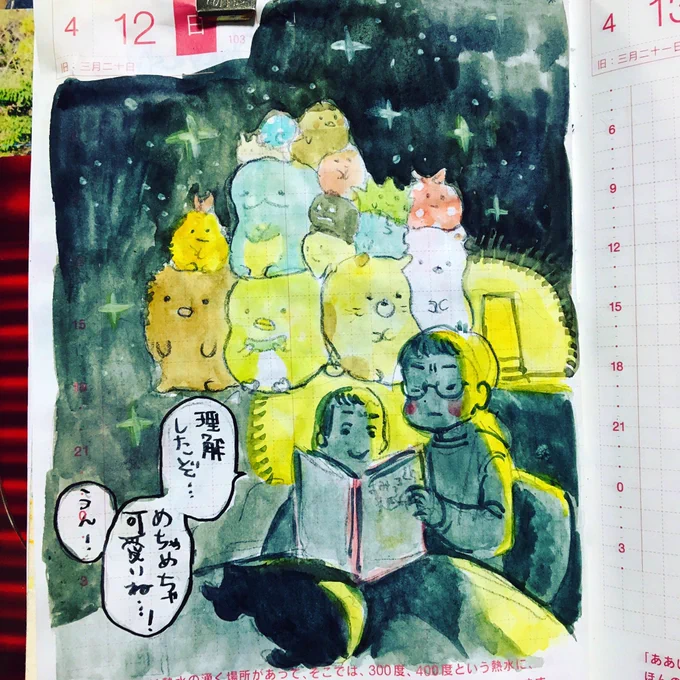 4 12 日
103
旧:三月二十日
4 13
旧:三月二十一日
6
9
12
15
18
21
0
3
15
21
3
理解
したぞ…
うん!
めちゃめちゃ
可愛いね…!
熱水の湧く場所があって、そこでは、300度、400度という熱水に、
「ああい
ほんの